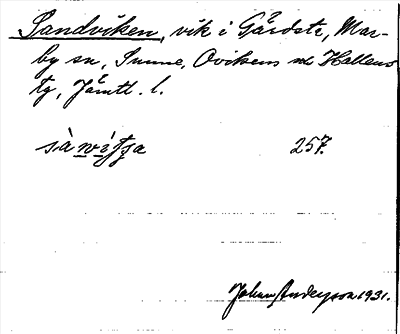 Sandviken, vik i Gärdsta, Mar-
by sn, Sunne, Ovikens o. Hallens
tg, Jämtl. l.
257.
Johan Anderson 1931.